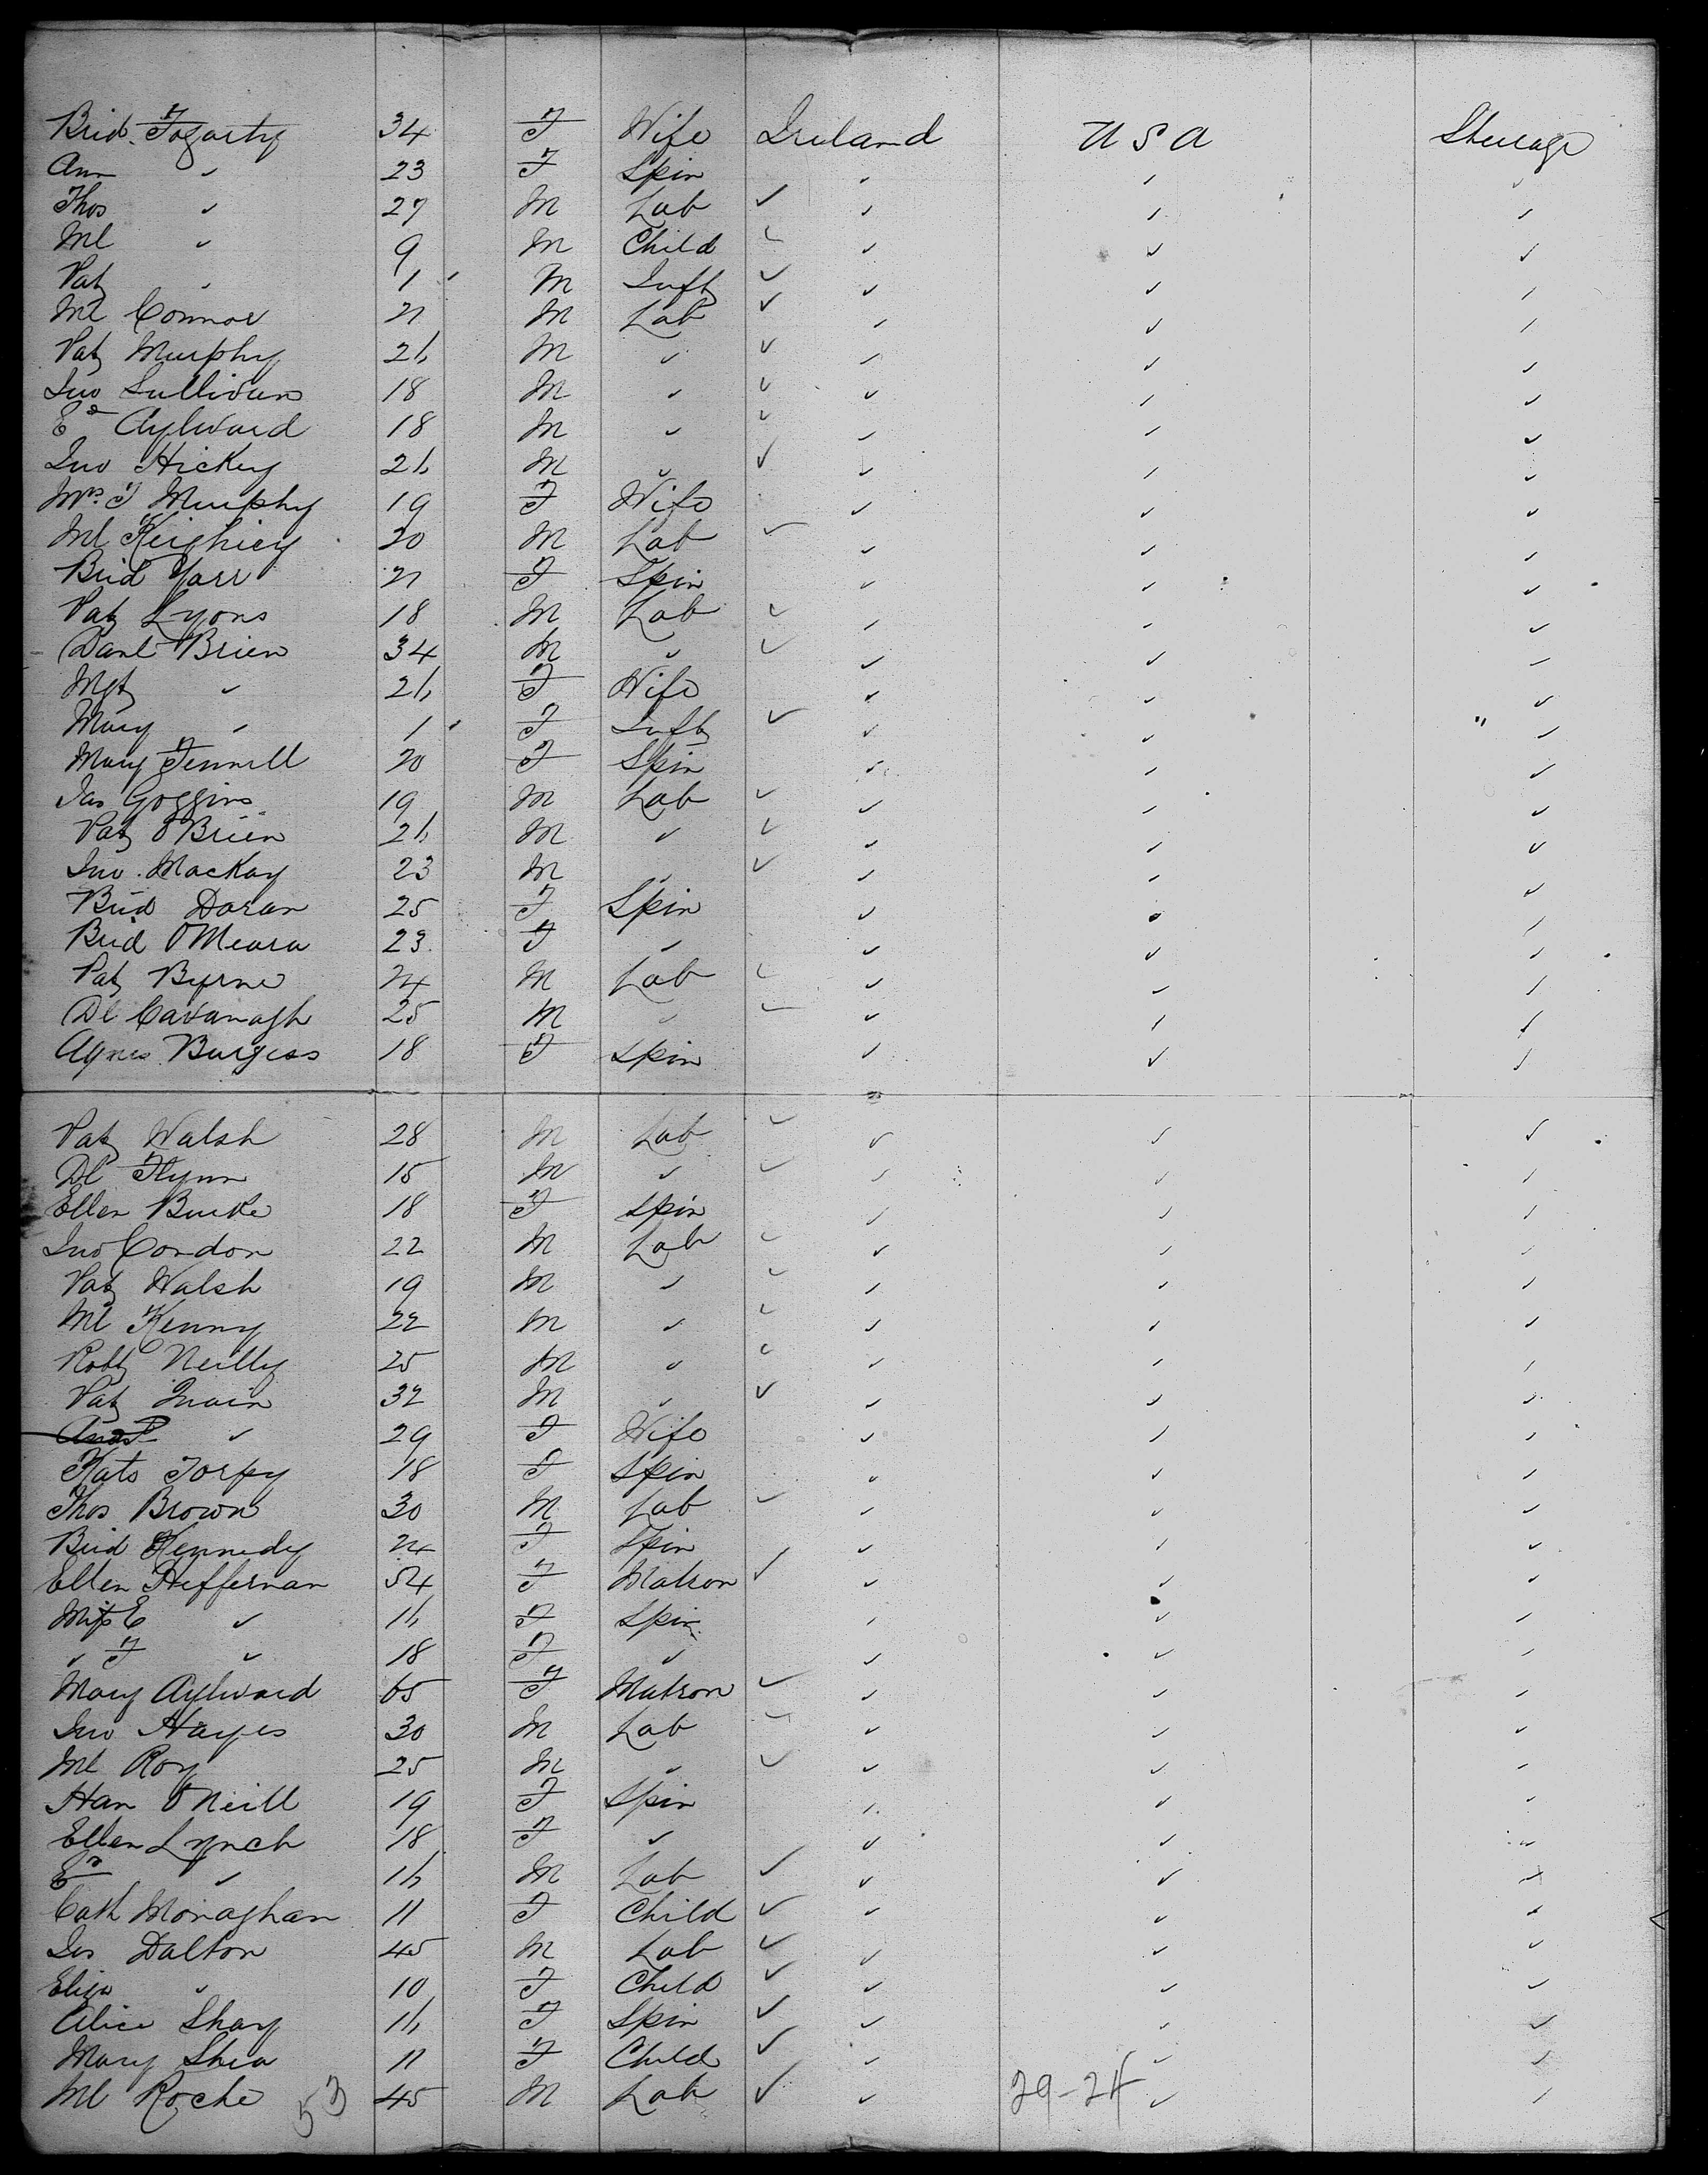 Brid. Fogarty 34 F Wife Ireland U S A Steerage
Ann " 23 F Spin " " "
Thos " 27 M Lab " " "
Ml " 9 M Child " " "
Pat " 1 M Inft " " "
Ml Connor 21 M Lab " " "
Pat Murphy 26 M " " " "
Jno Sullivan 18 M " " " "
Ed Aylward 18 M " " " "
Jno Hickey 26 M " " " "
Mrs. J Murphy 19 F Wife " " "
Ml 20 M Lab " " "
Brid Yarr 21 F Spin " " "
Pat Lyons 18 M Lab " " "
Danl Brien 34 M " " " "
Mgt " 26 F Wife " " "
Mary " 1 F Inft " " "
Mary Fennell 20 F Spin " " "
Jas Goggins 19 M Lab " " "
Pat O'Brien 26 M " " " "
Jno. Mackay 23 M " " " "
Brid Doran 25 F Spin " " "
Brid O'Meara 23 F " " " "
Pat Byrne 24 M Lab " " "
Dl Cavanagh 25 M " " " "
Agnes Burgess 18 F Spin " " "
Pat Walsh 28 M Lab " " "
Dl Flynn 15 M " " " "
Ellen Burke 18 F Spin " " "
Jno Condon 22 M Lab " " "
Pat Walsh 19 M " " " "
Ml Kenny 22 M " " " "
Robt Neilly 25 M " " " "
Pat Quain 32 M " " " "
" 29 F Wife " " "
Kate Torpy 18 F Spin " " "
Thos Brown 30 M Lab " " "
Brid Kennedy 24 F Spin " " "
Ellen Heffernan 54 F Matron " " "
Miss E " 16 F Spin " " "
" F " 18 F " " " "
Mary Aylward 65 F Matron " " "
Jno Hayes 30 M Lab " " "
Ml Roy 25 M " " " "
Han O'Neill 19 F Spin " " "
Ellen Lynch 18 F " " " "
Ed " 16 M Lab " " "
Cath Monaghan 11 F Child " " "
Jas Dalton 45 M Lab " " "
Eliza " 10 F Child " " "
Alice 16 F Spin " " "
Mary Shea 11 F Child " " "
Ml Roche 53 45 M Lab " 29-24 " "